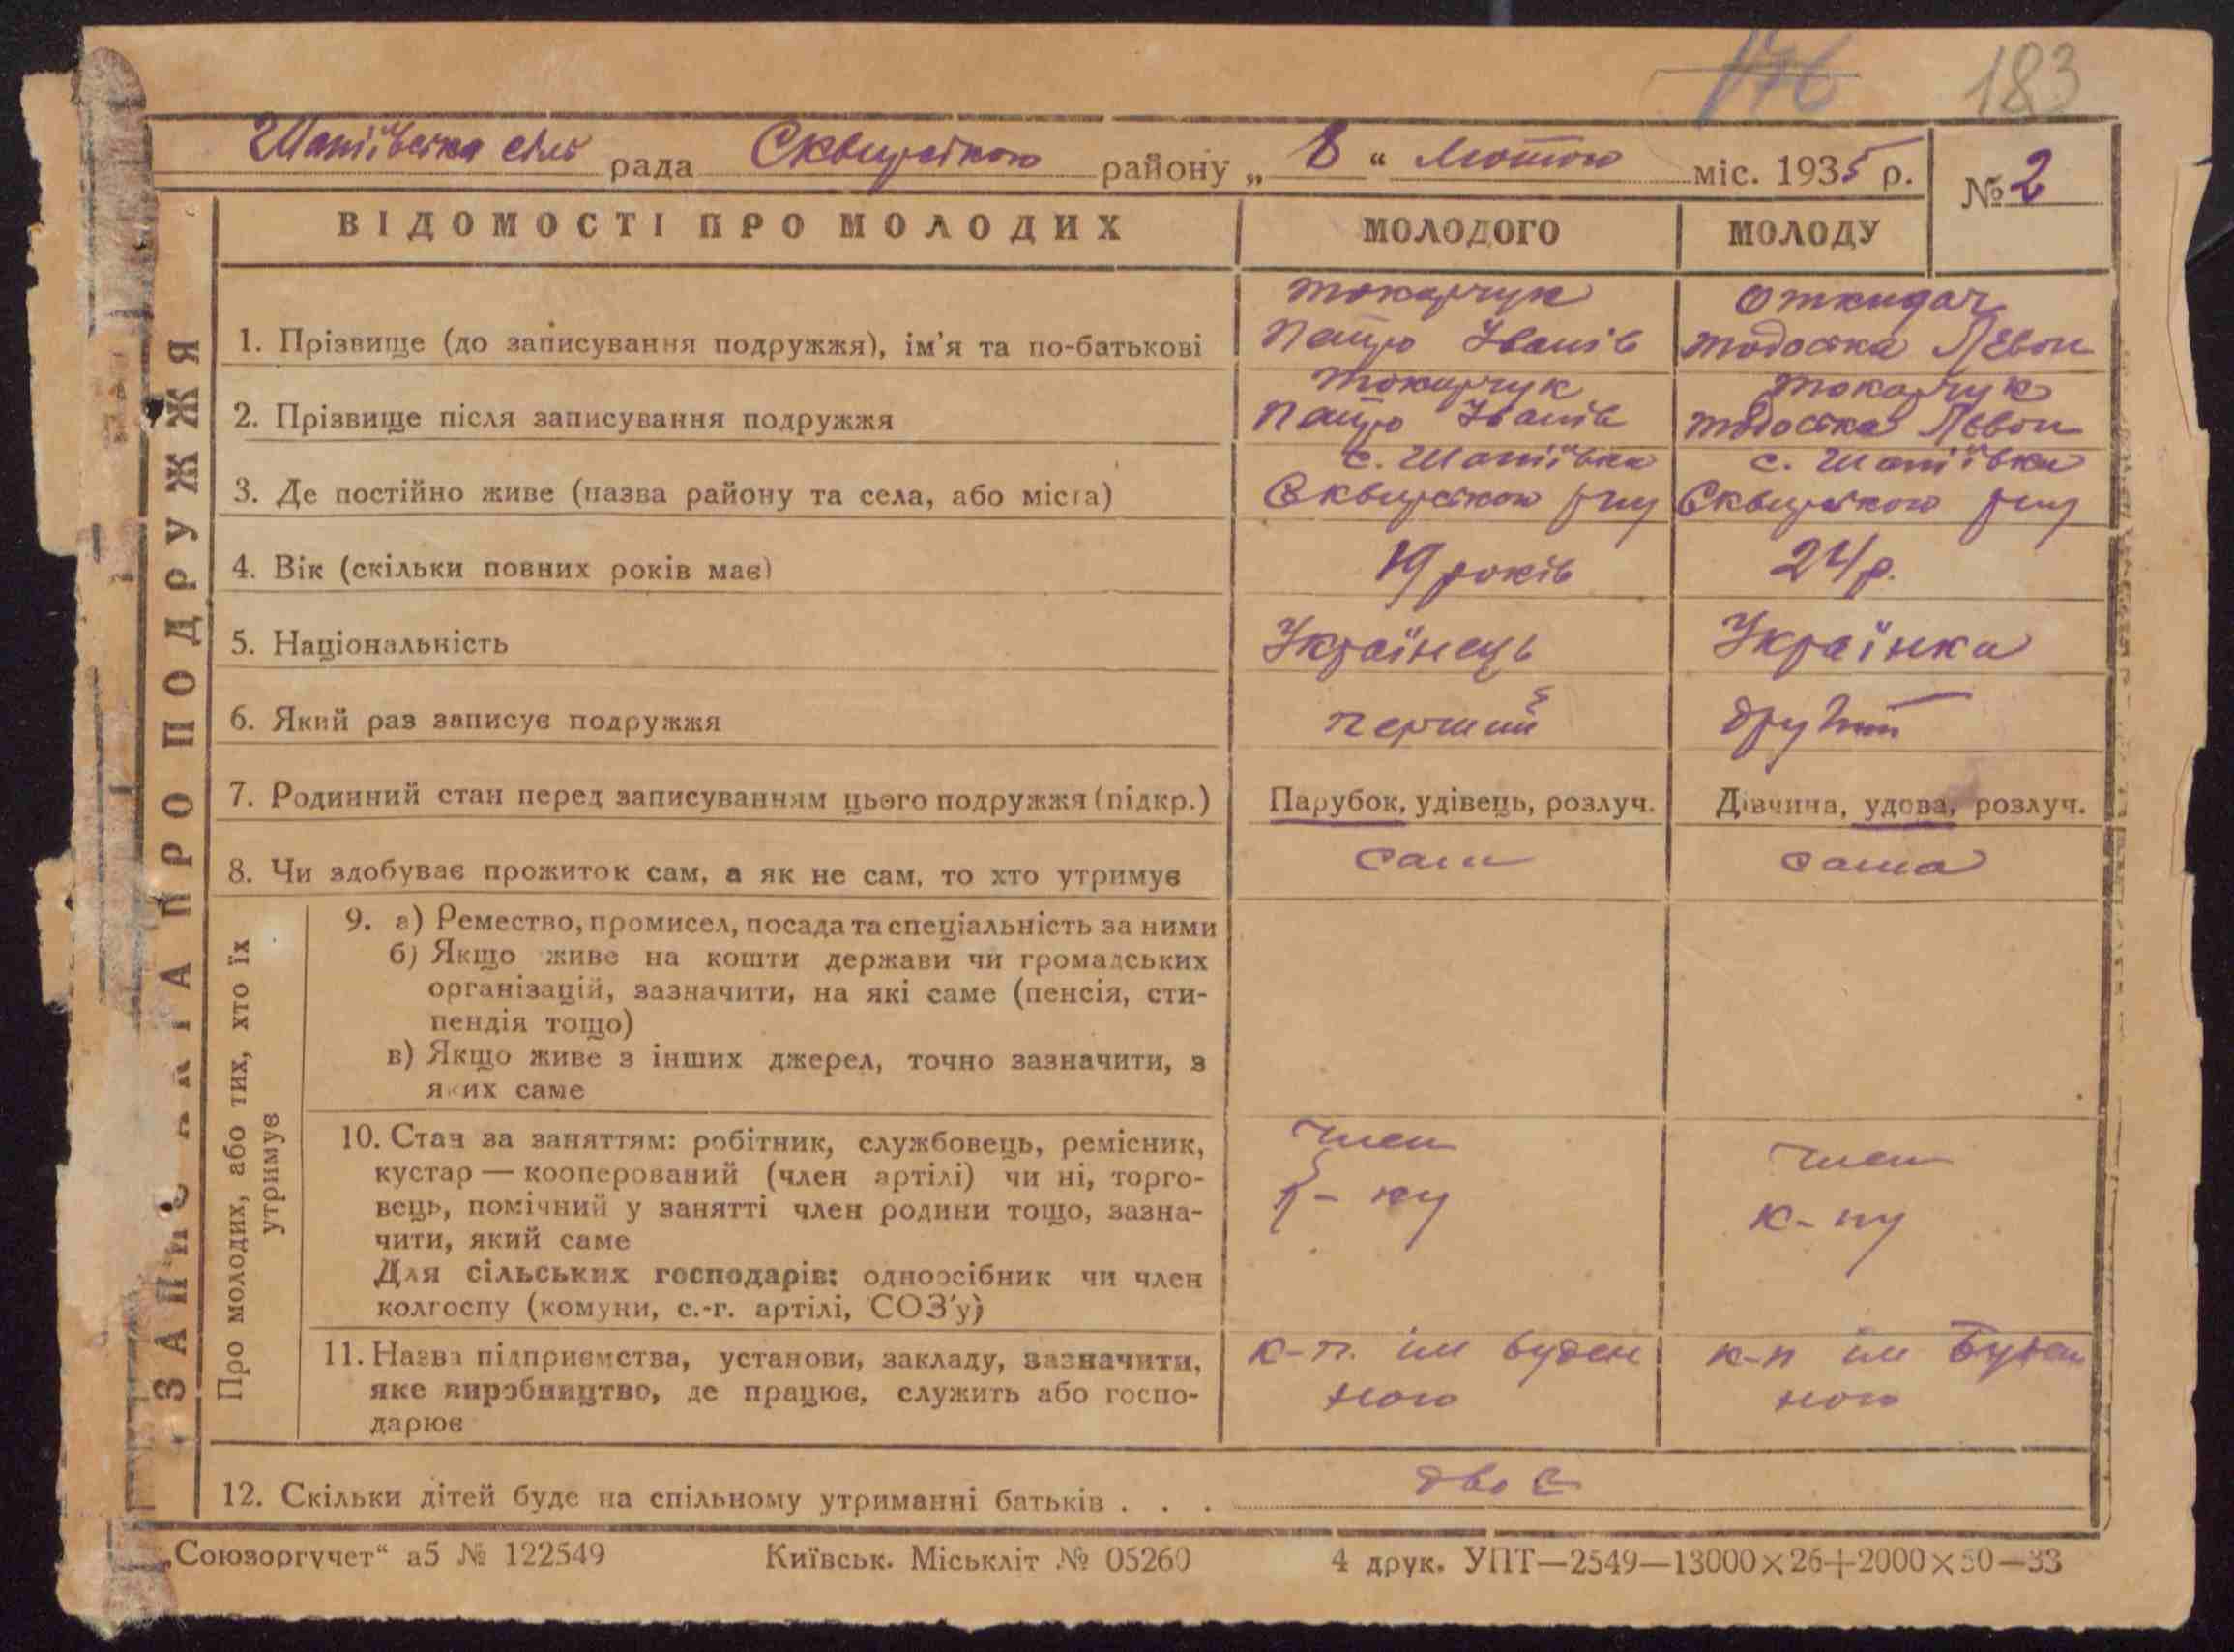 176 183
Шапіївська сіль рада Сквирського району „ 8 “ Лютого міс. 1935 р. № 2
ЗАПИС АКТА ПРО ПОДРУЖЖЯ
ВІДОМОСТІ ПРО МОЛОДИХ МОЛОДОГО МОЛОДУ
Токарчук Откидач
1. Прізвище (до записування подружжя), ім’я та по-батькові Петро Іванів Тодоска Левон
Токарчук Токарчук
2. Прізвище після записування подружжя Петро Іванів Тодоска Левон
с. Шапіївка с. Шапіївка
3. Де постійно живе (назва району та села, або міста) Сквирського р-ну Сквирського р-ну
4. Вік (скільки повних років має) 19 років 24 р.
5. Національність Українець Українка
6. Який раз записує подружжя перший другий
7. Родинний стан перед записуванням цього подружжя (підкр.) Парубок, удівець, розлуч. Дівчина, удова, розлуч.
8. Чи здобуває прожиток сам, а як не сам, то хто утримує сам сама
Про молодих, або тих, хто їх
утримує
9. а) Ремество, промисел, посада та спеціальність за ними
б) Якщо живе на кошти держави чи громадських
організацій, зазначити, на які саме (пенсія, сти-
пендія тощо)
в) Якщо живе з інших джерел, точно зазначити, з
яких саме
10. Стан за заняттям: робітник, службовець, ремісник, член член
кустар — кооперований (член артілі) чи ні, торго-
вець, помічний у занятті член родини тощо, зазна- к-пу
чити, який саме
Для сільських господарів: одноосібник чи член
колгоспу (комуни, с.-г. артілі, СОЗ’у)
11. Назва підприємства, установи, закладу, зазначити, к-п. ім Буден к-п ім Буден
яке виробництво, де працює, служить або госпо- ного ного
дарює
12. Скільки дітей буде на спільному утриманні батьків . . . двоє
„Союзоргучет“ а5 № 122549 Київськ. Міськліт № 05260 4 друк. УПТ—2549—13000×26+2000×50—33